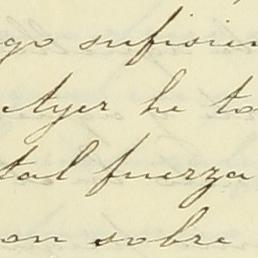 go sufisien
Ayer he to
tal fuerza
on sobre